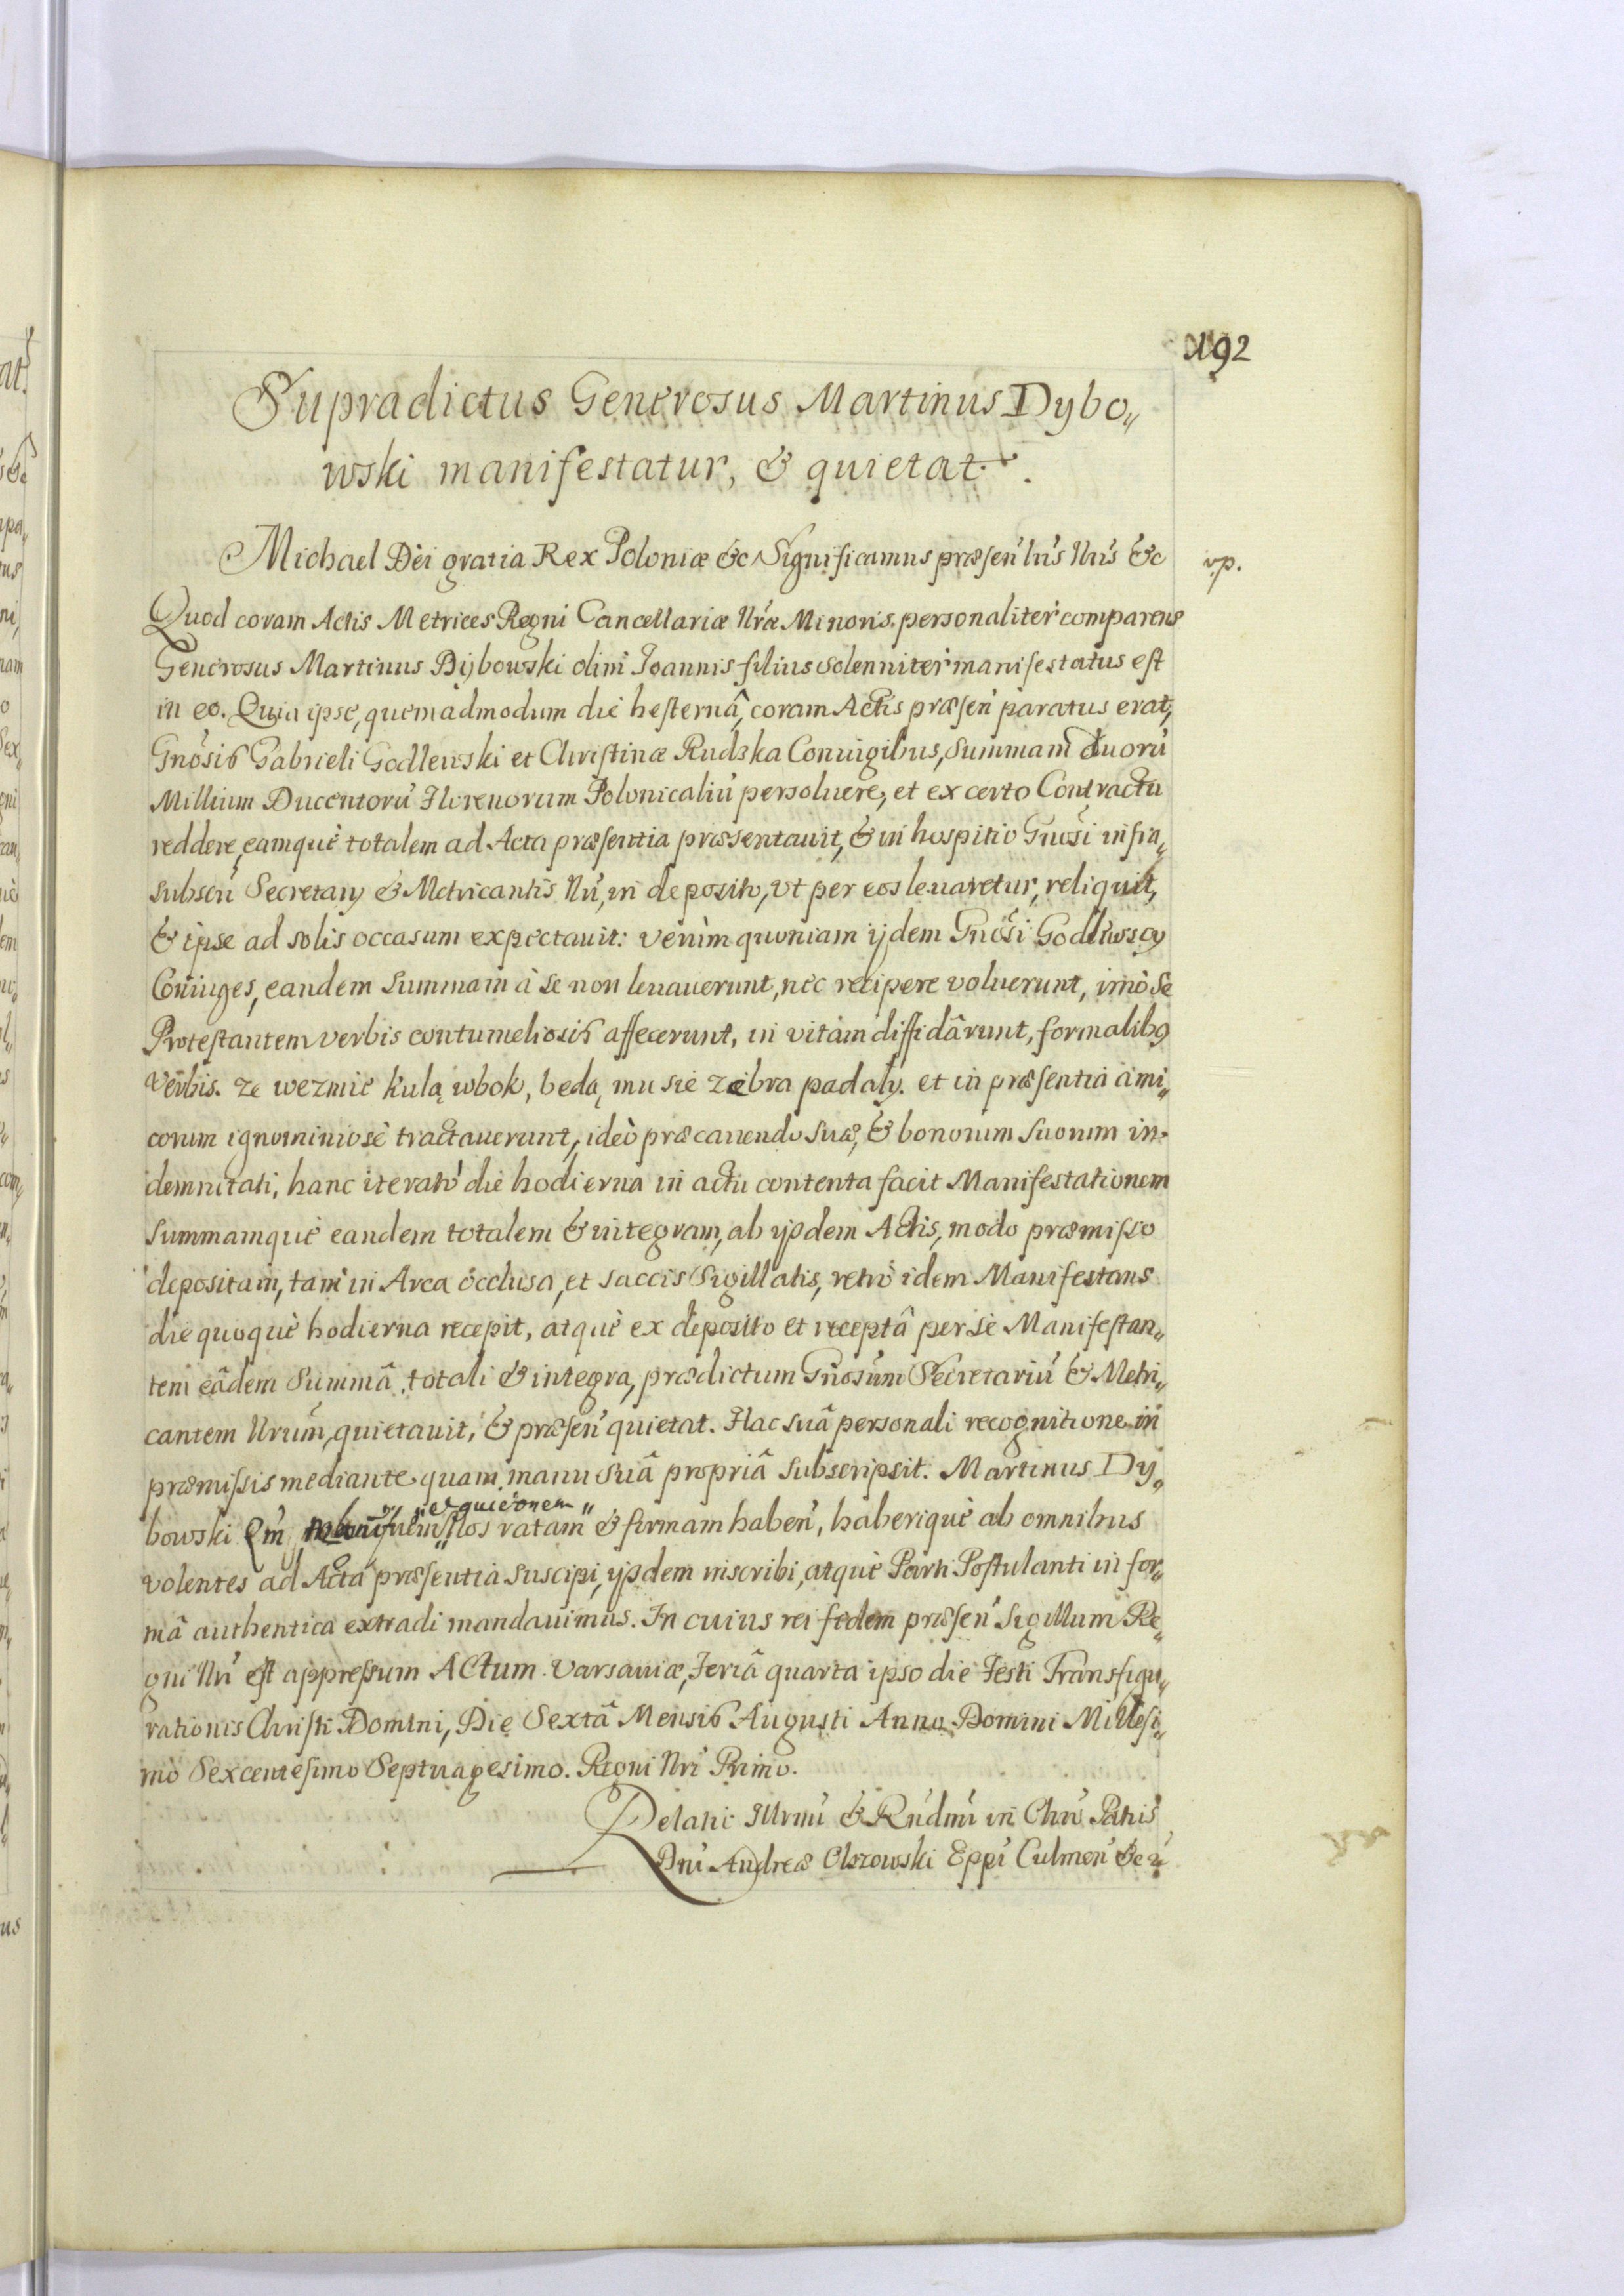 192
Supradictus Generosus Martinus Dybo„
wski manifestatur, & quietat.
Michael Dei gratia Rex Poloniæ &c Significamus præsen̄ l'ris N'ris &c
vp.
Quod coram Actis Metrices Regni Cancellariæ N'ræ Minoris personaliter comparens
Generosus Martinus Dybowski olim Joannis filius solenniter manifestatus est
in eo. Quia ipse, quemadmodum die hesternâ, coram Actis præsen̄ paratus erat,
Gnosis Gabrieli Godlewski et Christinæ Rudzka Coniugibus, Summam duorū
Millium Ducentorū Florenorum Polonicaliū persoluere, et ex certo Contractu
reddere, eamquè totalem ad Acta præsentia præsentauit, & in hospitio Gnosi infra„
subscri Secretarij & Metricantis N'ri, in deposito, vt per eos leuaretur, reliquit,
& ipse ad solis occasum expectauit: verùm quoniam ijdem Gnosi Godlewscy
Coniuges, eandem summam à se non leuauerunt, nec recipere voluerunt, imò se
Protestantem verbis contumeliosis affecerunt, in vitam diffidârunt, formalibq
verbis. ze wezmie kulą wbok, bedą mu sie zebra padały. et in præsentia ami„
corum ignominiosè tractauerunt, ideò præcauendo suæ, & bonorum suorum in„
demnitati, hanc iterato die hodierna in actu contenta facit Manifestationem
summamquè eandem totalem & integram, ab ijsdem Actis, modo præmisso
depositam, tam in Arca occlusa, et saccis Sigillatis, retrò idem Manifestans
die quoquè hodierna recepit, atquè ex deposito et receptâ per se Manifestan„
tem eâdem Summâ, totali & integra, prædictum Gnosum Secretariū & Metri„
cantem N'rum, quietauit, & præsen̄ quietat. Hac suâ personali recognitione in
præmissis mediante quam manu suâ propriâ subscripsit. Martinus Dy„
et quie͞onem„
bowski Qm̄ Nos ratam & firmam haben̄, haberiquè ab omnibus
volentes ad Acta præsentia suscipi, ijsdem inscribi, atquè Parti Postulanti in for„
mâ authentica extradi mandauimus. In cuius rei fidem præsen̄ Sigillum Re„
gni N'ri est appressum Actum Varsauiæ, Feriâ quarta ipso die Festi Transfigu„
rationis Christi Domini, Die Sextâ Mensis Augusti Anno Domini Millesi„
mo Sexcentesimo Septuagesimo. Regni N'ri Primo.
Relatio Illrmi & Rndmi in Chro Patris
Dni Andreæ Olszowski Eppi Culmen̄ &c